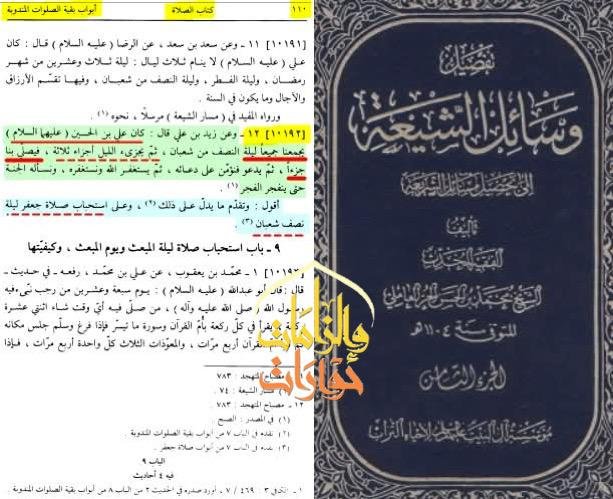 ١١٠
كتاب الصلاة
أبواب بقية الصلوات المندوبة
[١٠١٩١] ١١ ـ وعن سعد بن سعد ، عن الرضا ( عليه السلام ) قال : كان
علي ( عليه السلام ) لا ينام ثلاث ليال : ليلة ثلاث وعشرين من شهر
رمضان ، وليلة الفطر ، وليلة النصف من شعبان ، وفيها تقسّم الأرزاق
والآجال وما يكون في السنة .
ورواه المفيد في ( مسار الشيعة ) مرسلاً ، نحوه (١) .
[١٠١٩٢] ١٢ ـ وعن زيد بن علي قال : كان علي بن الحسين ( عليهما السلام )
يجمعنا جميعاً ليلة النصف من شعبان ، ثمّ يجزىء الليل أجزاء ثلاثة ، فيصلّي بنا
جزءاً ، ثمّ يدعو فنؤمّن على دعائه ، ثمّ يستغفر الله ونستغفره ، ونسأله الجنة
حتى ينفجر الفجر (١) .
أقول : وتقدّم ما يدلّ على ذلك (٢) ، وعلى استحباب صلاة جعفر ليلة
نصف شعبان (٣) .
٩ ـ باب استحباب صلاة ليلة المبعث ويوم المبعث ، وكيفيّتها
١ ـ محمّد بن يعقوب ، عن علي بن محمّد ، رفعه ـ في حديث ـ
قال : قال أبو عبدالله ( عليه السلام ) : يوم سبعة وعشرين من رجب نبّىء فيه
رسول الله ( صلى الله عليه وآله ) ، من صلّى فيه أيّ وقت شاء اثنتي عشرة
ركعة يقرأ في كلّ ركعة بأمّ القرآن وسورة ما تيسّر فإذا فرغ وسلّم جلس مكانه
القرآن أربع مرّات ، والمعوّذات الثلاث كلّ واحدة أربع مرّات ، فإذا
مصباح المتهجد : ٧٨٣
(١) مسار الشيعة : ٧٤ .
١٢ ـ مصباح المتهجد : ٧٨٣
(١) في المصدر : الصبح .
(٢) تقدم في الباب ٧ من أبواب بقية الصلوات المندوبة .
(٣) تقدم في الباب ٧ من أبواب صلاة جعفر .
الباب ٩
فيه ٤ أحاديث
١ ـ الكافي ٣ : ٤٦٩ / ٧ ، أورد صدره في الحديث ٢ من الباب ٨ من أبواب بقية الصلوات المندوبة .
حوارات
والزامات
تفصيل
وسائل الشيعة
إلى تحصيل مسائل الشريعة
تأليف
الفقيه المحدث
الشيخ محمد بن الحسن الحر العاملي
المتوفى سنة ١١٠٤ هـ
الجزء الثامن
مؤسسة آل البيت عليهم السلام لإحياء التراث